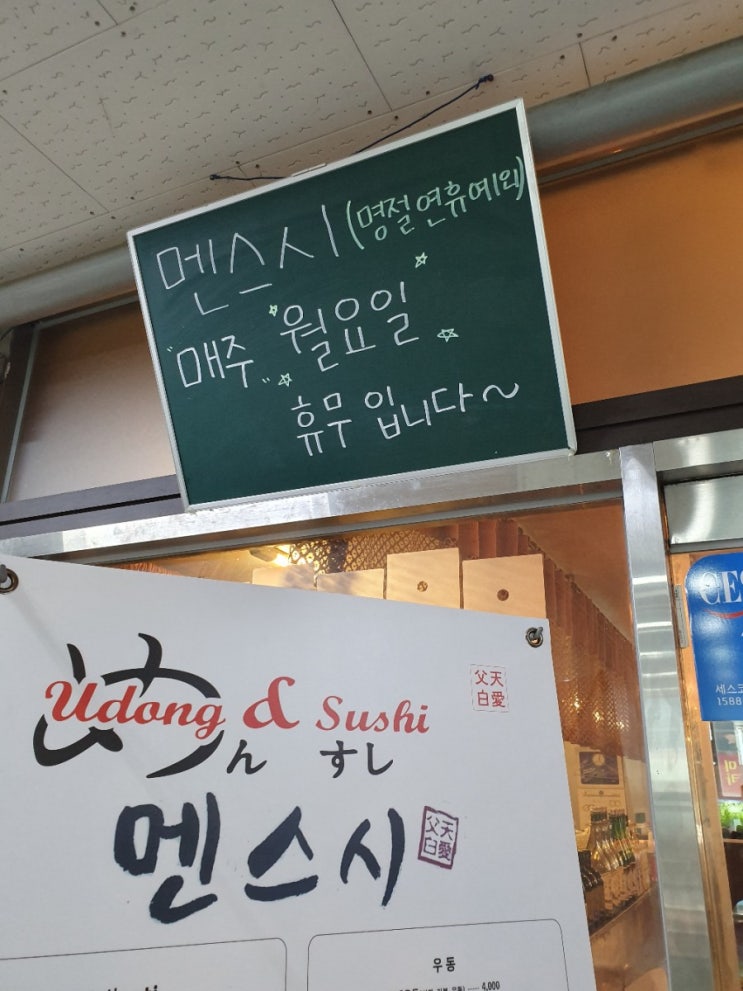 멘스시 (명절연휴예외)
"매주" 월요일
휴무 입니다~
Udong & Sushi
めん すし
天愛
父白
멘스시
天愛
父白
우동
4,000
CES
세스코
1588